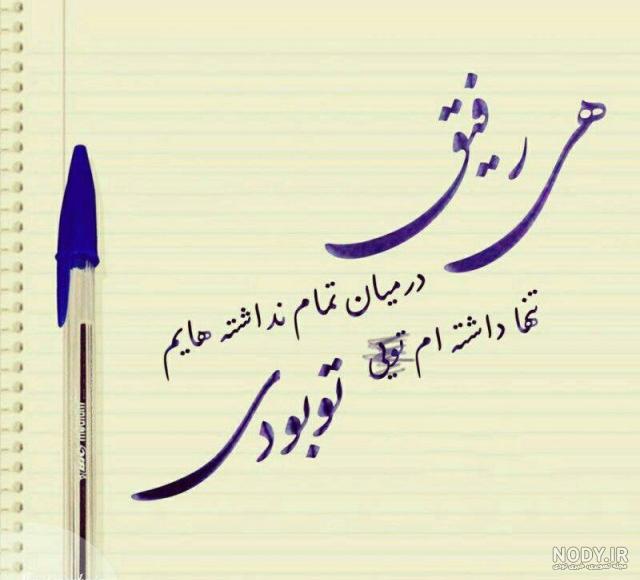 هی رفیق
در میان تمام نداشته هایم
تنها داشته ام تویی
تو بودی
NODY.IR